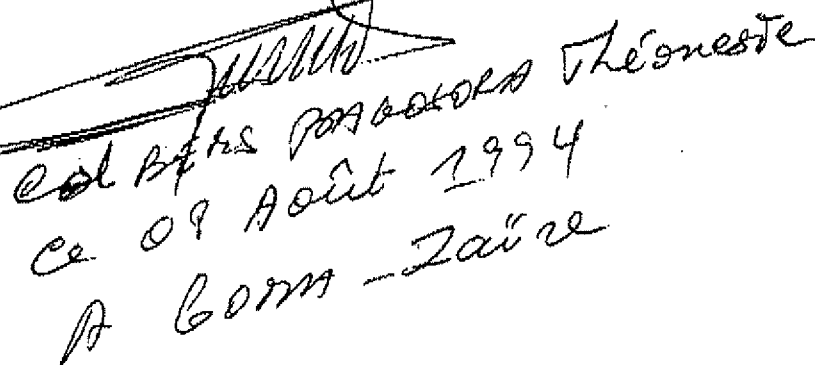 Col BEMS BAGOSORA Théoneste
Ce 09 Août 1994
A GOMA - Zaïre